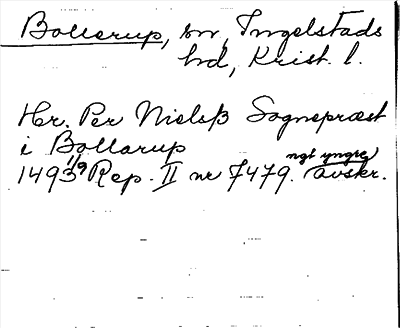 Bollerup, sn, Ingelstads
hd, Krist. l.
Hr. Per Nielsß Sognepræst
i Bollarup
1493 1/9 Rep. II nr 7479. ngt yngre avskr.